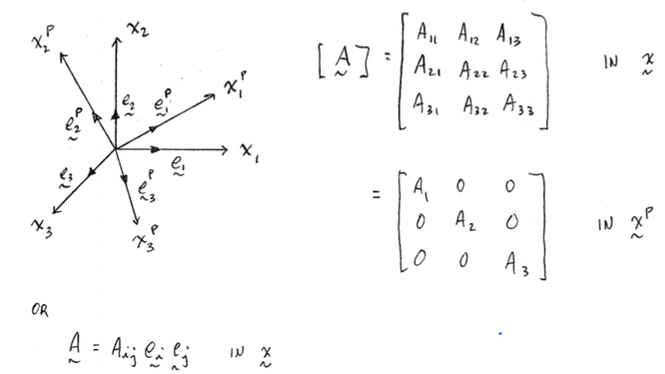 x₂ᴾ x₂
x₁ᴾ
e₂ᴾ e₂ e₁ᴾ
x₁
e₁
e₃ e₃ᴾ
x₃ x₃ᴾ
[A] = [A₁₁ A₁₂ A₁₃
A₂₁ A₂₂ A₂₃
A₃₁ A₃₂ A₃₃] IN x
= [A₁ 0 0
0 A₂ 0
0 0 A₃] IN xᴾ
OR
A = Aᵢⱼ eᵢ eⱼ IN x